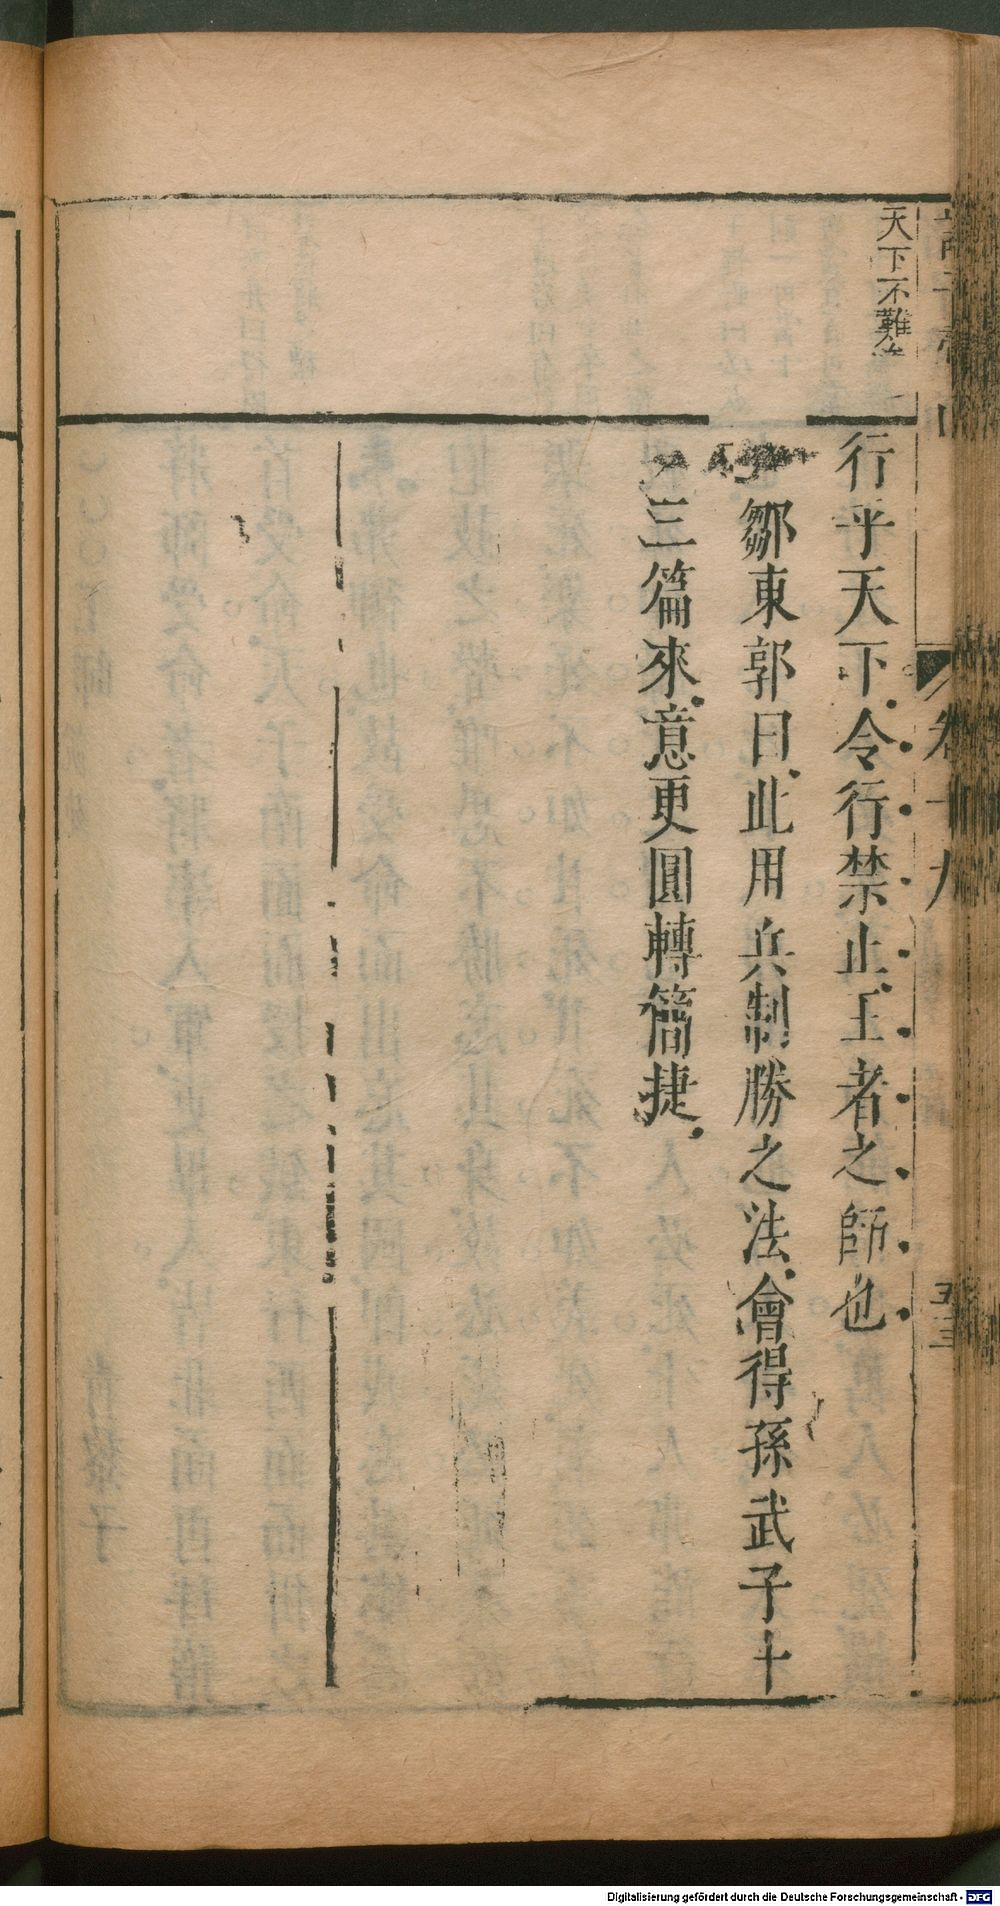 天下不難
行乎天下令行禁止王者之師也
鄒東郭曰此用兵制勝之法會得孫武子十
三篇來意更圓轉簡捷
卷十九
Digitalisierung gefördert durch die Deutsche Forschungsgemeinschaft - DFG